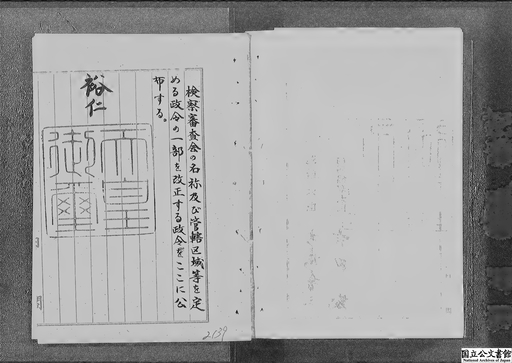 検察審査会の名称及び管轄区域等を定
める政令の一部を改正する政令をここに公
布する。
裕仁
天皇
御璽
2139
国立公文書館
National Archives of Japan